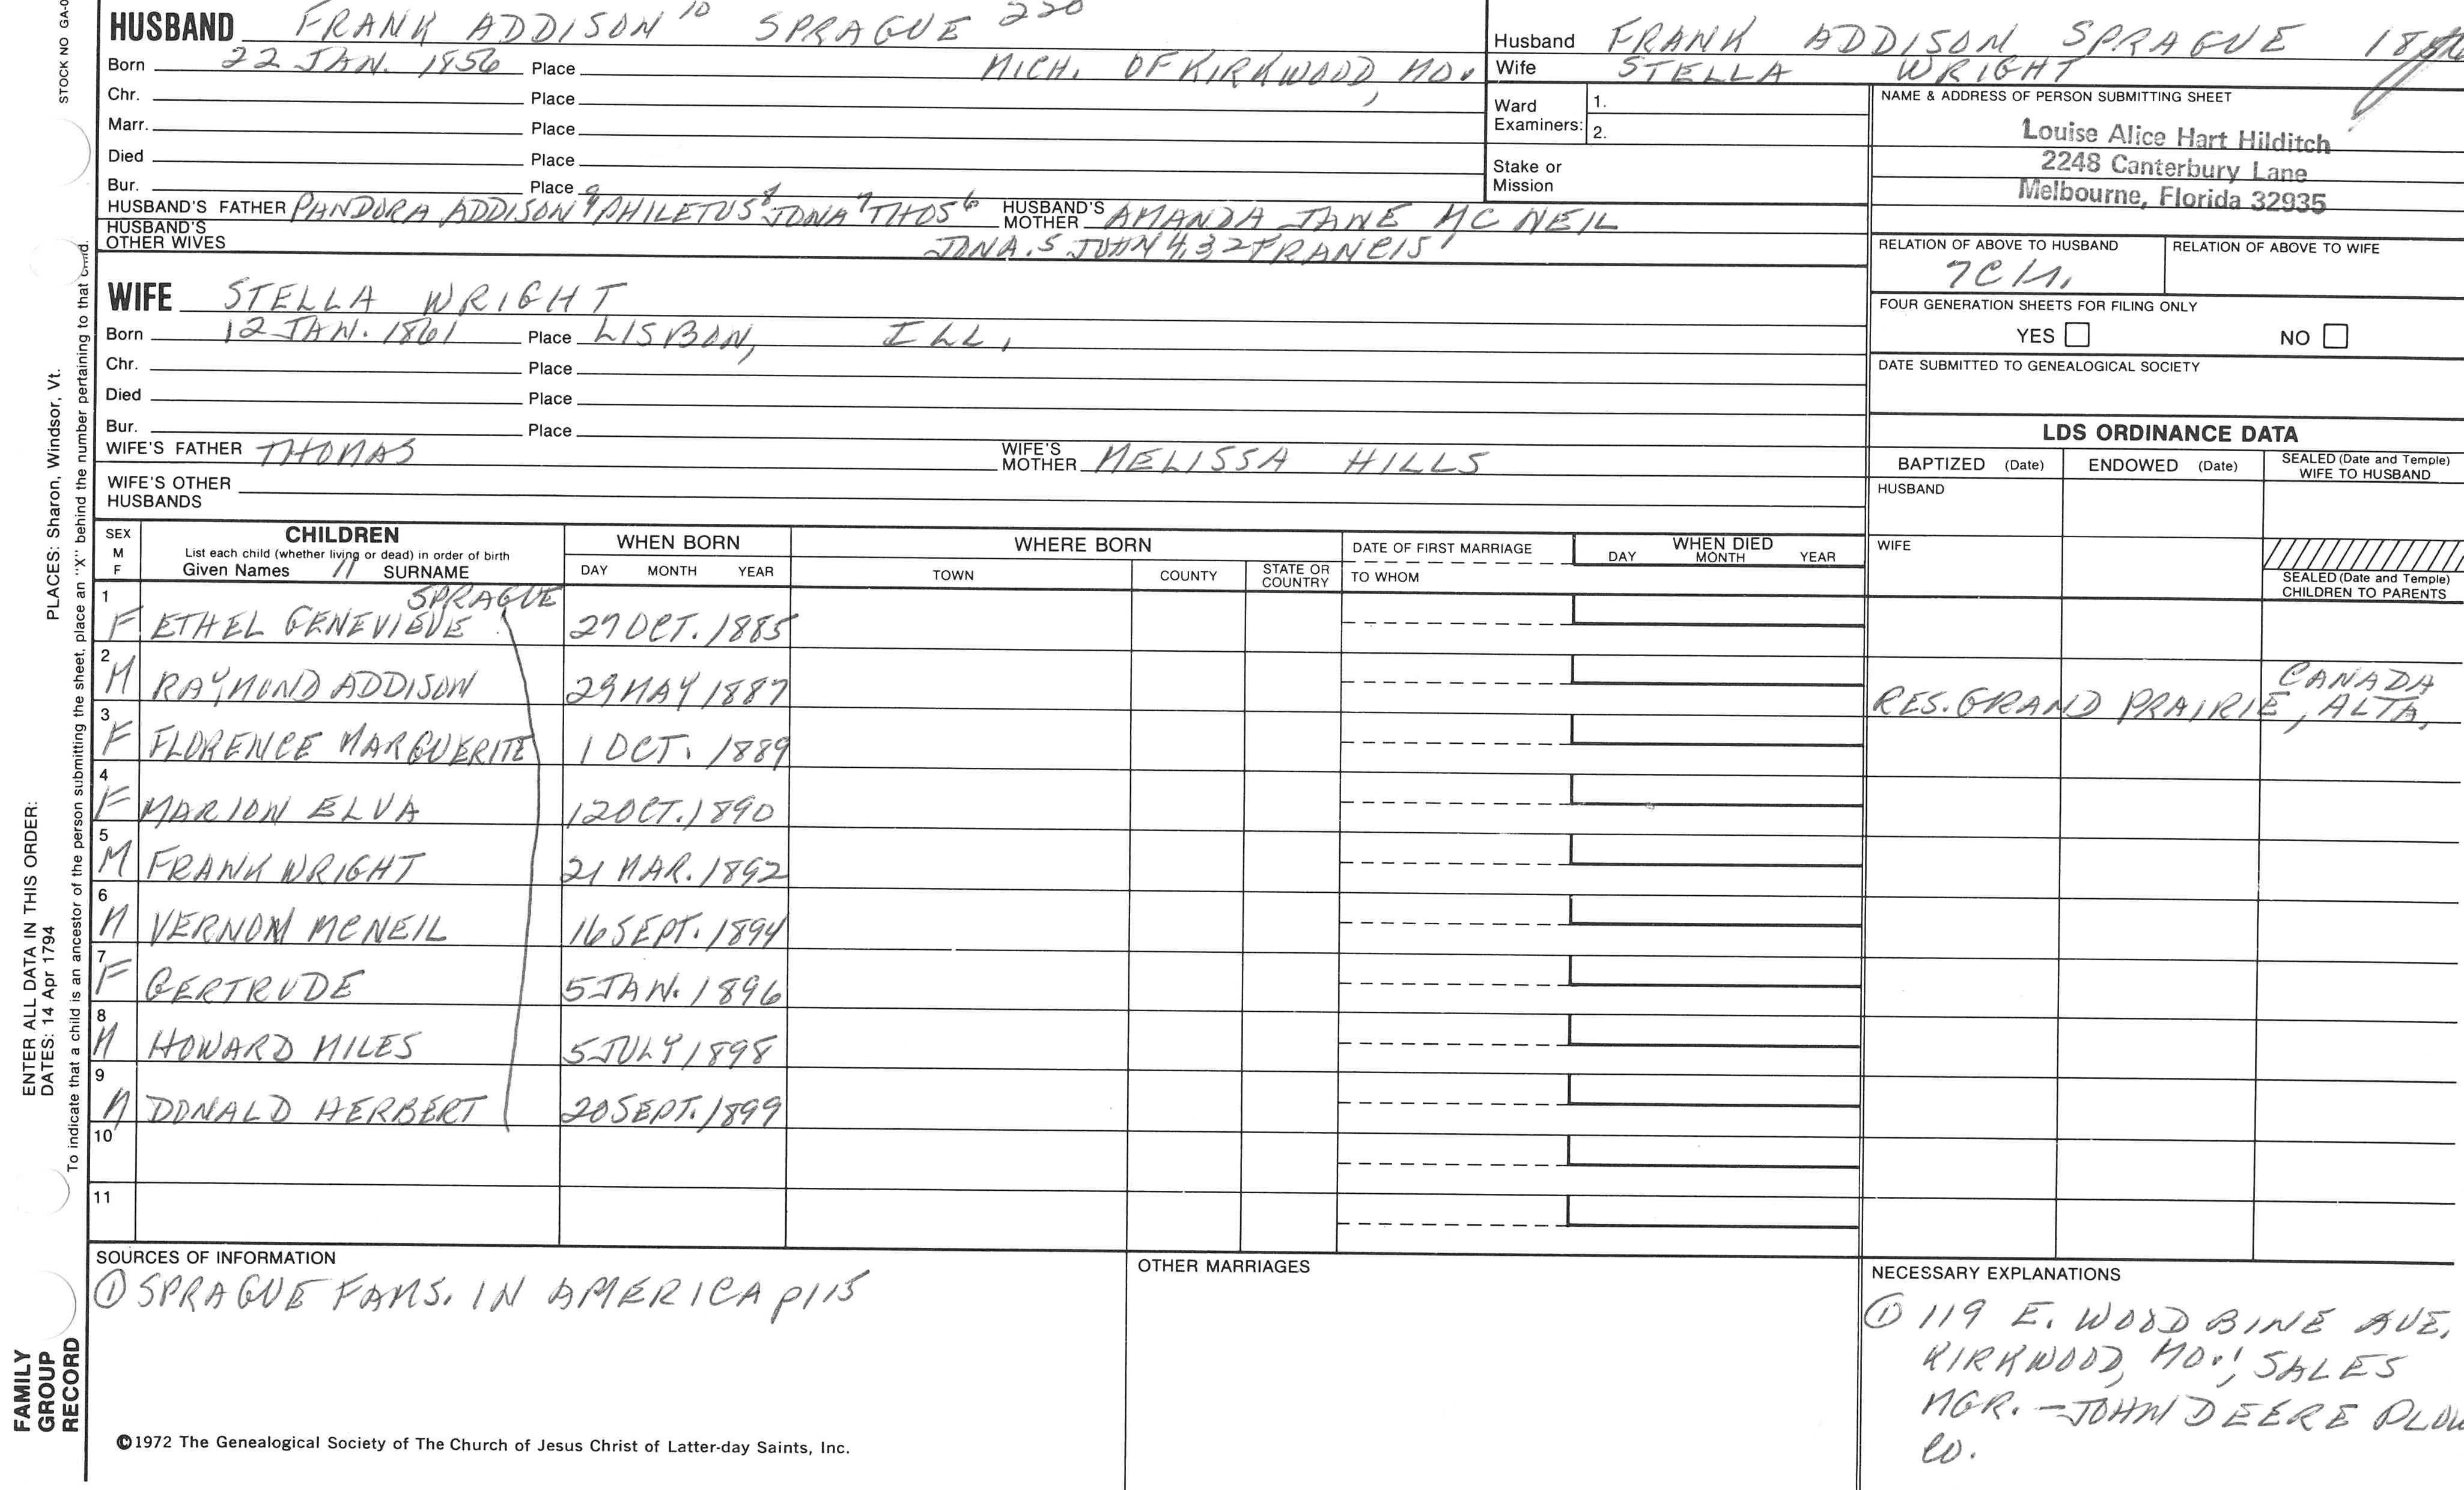 HUSBAND FRANK ADDISON 10 SPRAGUE 220
Born 22 JAN. 1856 Place MICH. OF KIRKWOOD, MO.
Chr. Place
Marr. Place
Died Place
Bur. Place
HUSBAND'S FATHER PANDORA ADDISON 9 PHILETUS 8 JONA 7 THOS 6 HUSBAND'S MOTHER AMANDA JANE MC NEIL
HUSBAND'S OTHER WIVES JONA. 5 JOHN 4,3 2 FRANCIS 1
WIFE STELLA WRIGHT
Born 12 JAN. 1861 Place LISBON, ILL.
Chr. Place
Died Place
Bur. Place
WIFE'S FATHER THOMAS WIFE'S MOTHER MELISSA HILLS
WIFE'S OTHER HUSBANDS
Husband FRANK ADDISON SPRAGUE
Wife STELLA WRIGHT
Ward Examiners: 1.
2.
Stake or Mission
NAME & ADDRESS OF PERSON SUBMITTING SHEET
Louise Alice Hart Hilditch
2248 Canterbury Lane
Melbourne, Florida 32935
RELATION OF ABOVE TO HUSBAND RELATION OF ABOVE TO WIFE
FOUR GENERATION SHEETS FOR FILING ONLY
YES NO
DATE SUBMITTED TO GENEALOGICAL SOCIETY
LDS ORDINANCE DATA
BAPTIZED (Date) ENDOWED (Date) SEALED (Date and Temple) WIFE TO HUSBAND
HUSBAND
WIFE
SEALED (Date and Temple) CHILDREN TO PARENTS
SEX M F CHILDREN WHEN BORN WHERE BORN DATE OF FIRST MARRIAGE WHEN DIED
List each child (whether living or dead) in order of birth
Given Names 11 SURNAME DAY MONTH YEAR TOWN COUNTY STATE OR COUNTRY TO WHOM DAY MONTH YEAR
SPRAGUE
1 F ETHEL GENEVIEVE 27 OCT. 1885
2 M RAYMOND ADDISON 29 MAY 1887 RES. GRAND PRAIRIE, ALTA, CANADA
3 F FLORENCE MARGUERITE 1 OCT. 1889
4 F MARION ELVA 12 OCT. 1890
5 M FRANK WRIGHT 21 MAR. 1892
6 M VERNON MCNEIL 16 SEPT. 1894
7 F GERTRUDE 5 JAN. 1896
8 M HOWARD MILES 5 JULY 1898
9 M DONALD HERBERT 20 SEPT. 1899
10
11
SOURCES OF INFORMATION
① SPRAGUE FAMS. IN AMERICA p115
OTHER MARRIAGES
NECESSARY EXPLANATIONS
① 119 E. WOODBINE AVE.
KIRKWOOD, MO.; SALES
MGR. - JOHN DEERE PLOW
CO.
©1972 The Genealogical Society of The Church of Jesus Christ of Latter-day Saints, Inc.
STOCK NO GA-0
PLACES: Sharon, Windsor, Vt.
ENTER ALL DATA IN THIS ORDER:
DATES: 14 Apr 1794
To indicate that a child is an ancestor of the person submitting the sheet, place an "X" behind the number pertaining to that child.
FAMILY
GROUP
RECORD